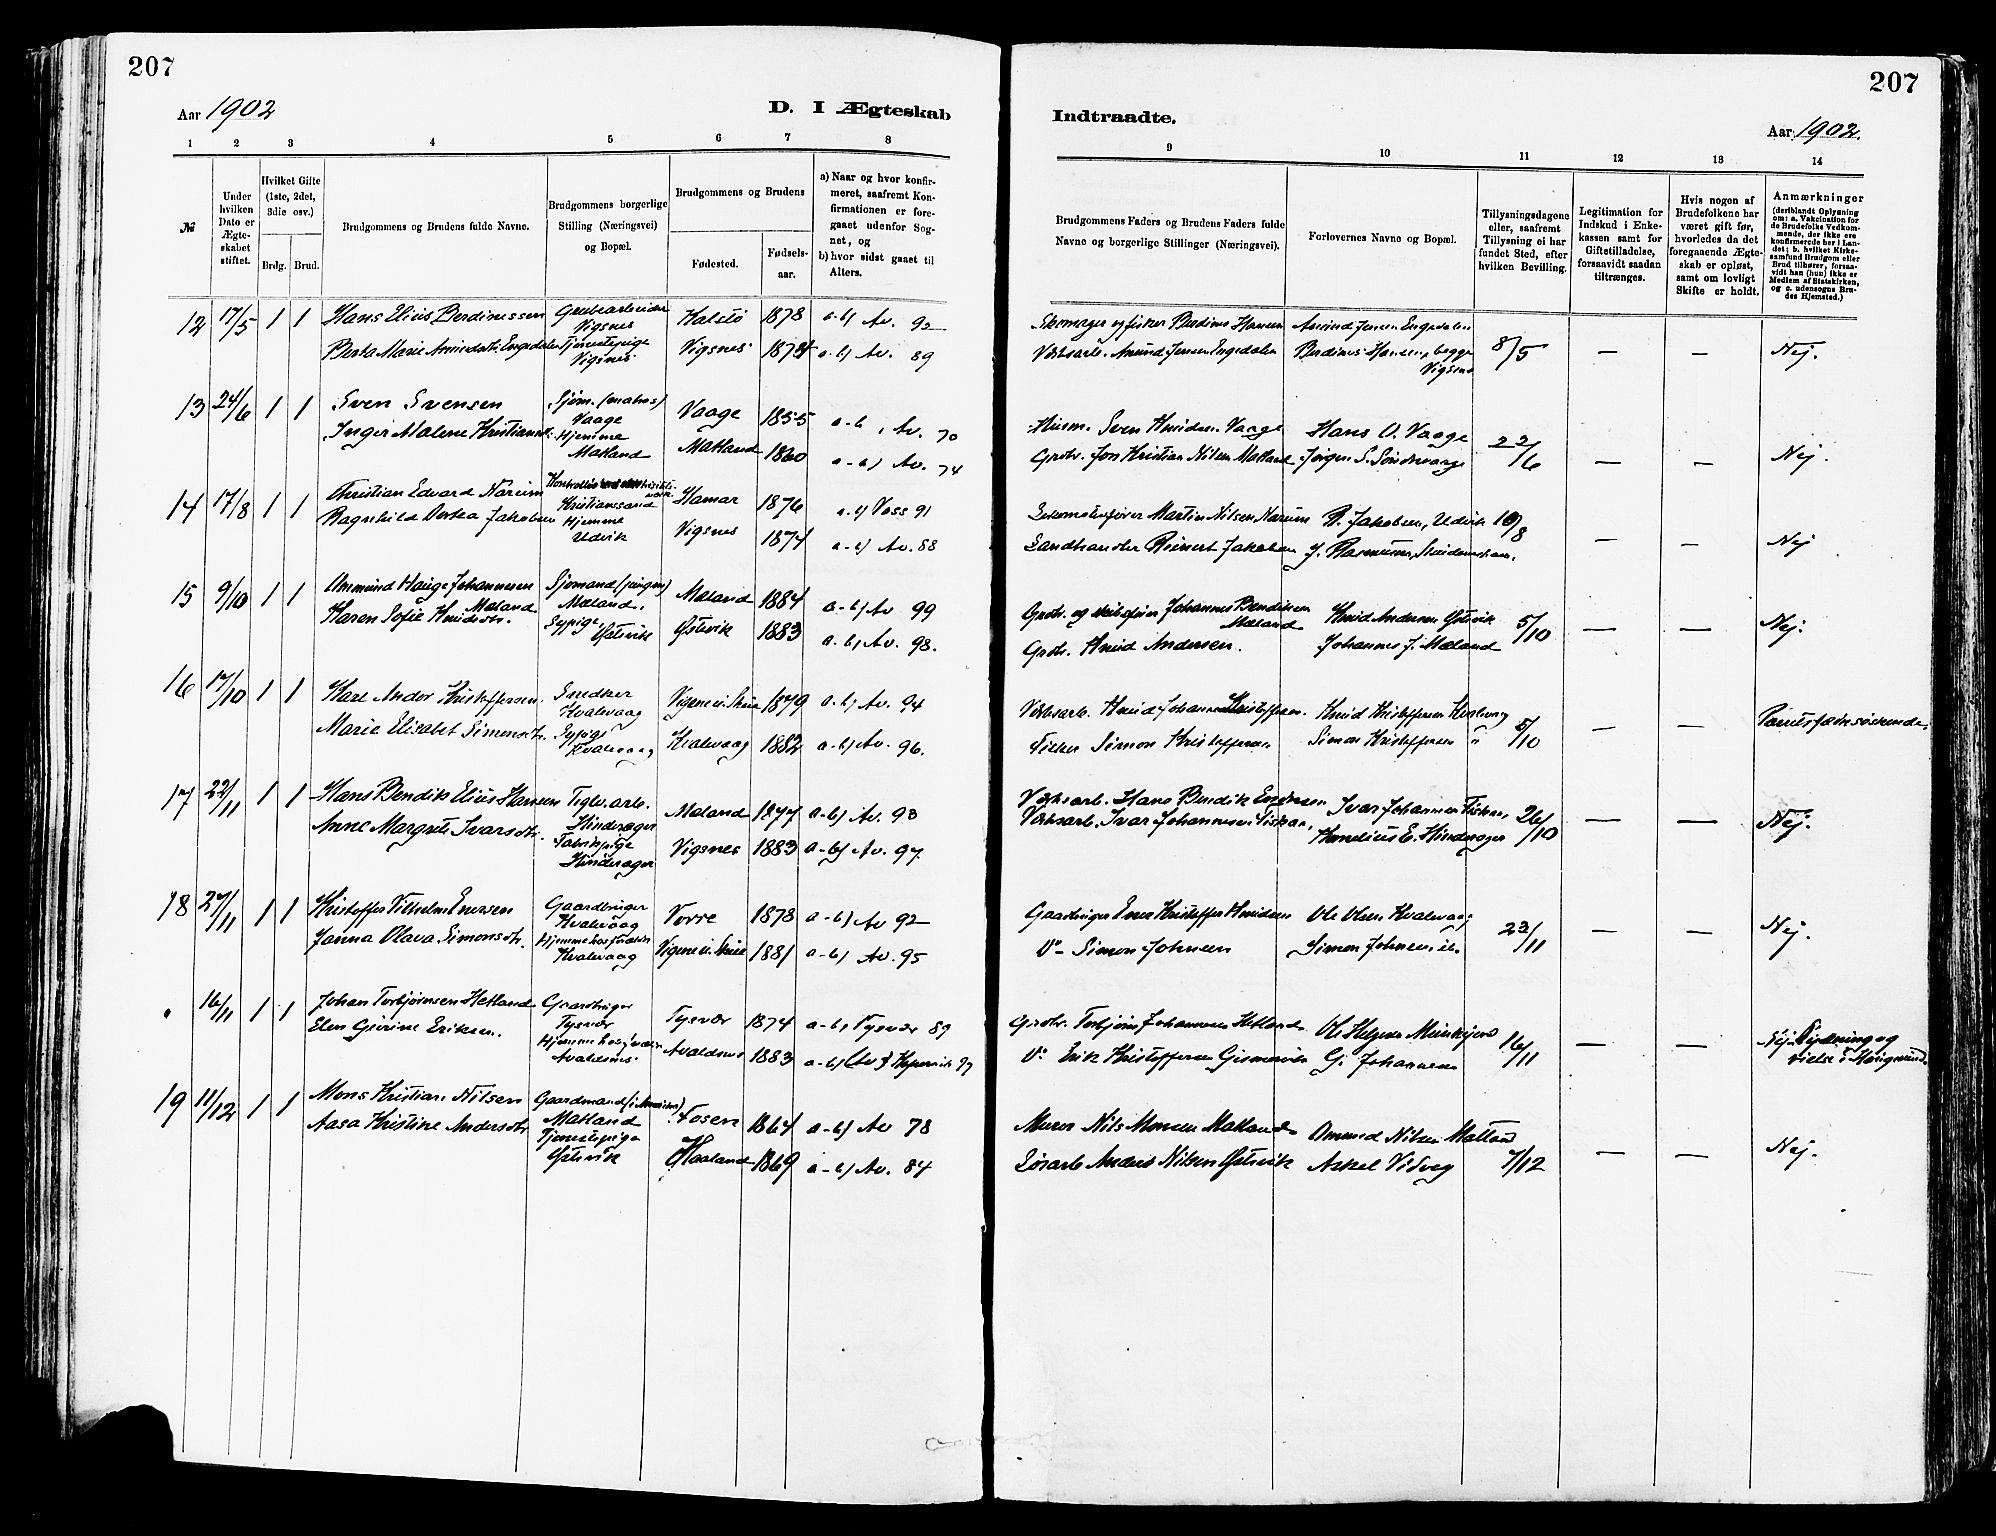 207
Aar 1902
D. I Ægteskab
1 2 3 4 5 6 7 8
№
Under hvilken Dato er Ægteskabet stiftet.
Hvilket Gifte (1ste, 2det, 3die osv.)
Brdg. Brud.
Brudgommens og Brudens fulde Navne.
Brudgommens borgerlige Stilling (Næringsvei) og Bopæl.
Brudgommens og Brudens
Fødested. Fødselsaar.
a) Naar og hvor konfirmeret, saafremt Konfirmationen er foregaaet udenfor Sognet, og
b) hvor sidst gaaet til Alters.
12 17/5 1 1 Hans Elius Berdinessen Grubearbeider Vigsnes 1878 a-b) Av. 92
Berta Marie Amundsdtr. Engedalen Tjenestepige Vigsnes Vigsnes 1874 a-b) Av. 89
13 24/6 1 1 Sven Svensen Sjøm. (matros) Vaage Vaage 1855 a-b, Av. 70
Inger Malene Kristiansdtr. Hjemme Matland Matland 1860 a-b) Av. 74
14 17/8 1 1 Christian Edvard Narum Kristianssand Hamar 1876 a-b) Voss 91
Ragnhild Dortea Jakobsen Hjemme Udvik Vigsnes 1874 a-b) Av. 88
15 9/10 1 1 Ommund Hauge Johannessen Mæland Sjømand (jungm) Mæland. Mæland 1884 a-b) Av 99
Karen Sofie Knudsdtr. Sypige, Østevik Østevik 1883 a-b) Av. 98.
16 17/10 1 1 Karl Andor Kristoffersen Snedker Kvalevaag 1879 a-b) Av. 94
Marie Elisabet Simonsdtr. Sypige Kvalevaag Kvalevaag 1882 a-b) Av. 96.
17 22/11 1 1 Hans Bendik Elius Hansen Teglv. arb. Hinderager Mæland 1877 a-b) Av. 93
Anne Margrete Ivarsdtr. Fabrikpige Hinderager Vigsnes 1883 a-b) Av. 97.
18 27/11 1 1 Kristoffer Vilhelm Enersen Gaardbruger Kvalevaag Vorre 1878 a-b) Av 92
Janna Olava Simonsdtr. Kvalevaag 1881 a-b) Av. 95
16/11 1 1 Johan Torbjørnsen Hetland Gaardbruger Tysvær Tysvær 1874 a-b, Tysvær 89
Elen Gurine Eriksen. Avaldsnes Avaldsnes 1883 a-b)
19 11/12 1 1 Mons Kristian Nilsen Gaardmand Matland Fosen 1864 a-b) Av 78
Aasa Kristine Andersdtr Tjenestepige Østevik Haaland 1869 a-b) Av. 84
207
Indtraadte.
Aar 1902.
9 10 11 12 13 14
Brudgommens Faders og Brudens Faders fulde Navne og borgerlige Stillinger (Næringsvei).
Forlovernes Navne og Bopæl.
Tillysningsdagene eller, saafremt Tillysning ei har fundet Sted, efter hvilken Bevilling.
Legitimation for Indskud i Enkekassen samt for Giftetilladelse, forsaavidt saadan tiltrænges.
Hvis nogen af Brudefolkene har været gift før, hvorledes da det foregaaende Ægteskab er opløst, samt om lovligt Skifte er holdt.
Anmærkninger
(deriblandt Oplysning om: a. Vakcination for de Brudefolks Vedkommende, der ikke ere konfirmerede her i Landet; b. hvilket Kirkesamfund Brudgom eller Brud tilhører, forsaavidt han (hun) ikke er Medlem af Statskirken, og c. udensogns Brudes Hjemsted.)
Skomager og fisker Berdines Hansen Amund Jensen Engedalen
Verksarb. Amund Jensen Engedalen Berdines Hansen, begge Vigsnes 8/5 — — Nej.
Husm. Sven Knudsen Vaage Hans O. Vaage 22/6
Grbr. Jon Kristian Nilsen Matland Jørgen S. Søndrevaage — — Nej.
Lokomotivfører Martin Nilsen Narum R. Jakobsen, Udvik 10/8
Landhandler Reinert Jakobsen — — Nej
Grbr. og Johannes Bendiksen Mæland Knud Andersen Østevik 5/10
Grbr. Knud Andersen. Johannes J. Mæland — — Nej.
Verksarb. Knud Johannes Kristoffersen. Knud Kristoffersen Kvalevaag 5/10
Fisker Simon Kristoffersen Simon Kristoffersen " — —
Verksarb. Hans Bendik Endresen Ivar Johannesen Fiskaa, 26/10
Verksarb. Ivar Johannesen Fiskaa, Kornelius E. Hinderager — — Nej.
Gaardbruger Ener Kristoffer Knudsen Ole Olsen Kvalevaag 23/11
Do — Simon Johnsen Simon Johnsen — — Nej.
Grdbr. Torbjørn Johannesen Hetland Ole Helgesen 16/11
Do Erik Kristoffersen Gismervik G. Johannesen — — Nej.
Murer Nils Monsen Matland Omund Nilsen Matland 7/12
Anders Nilsen Østevik Askel Vidvey — — Nej.